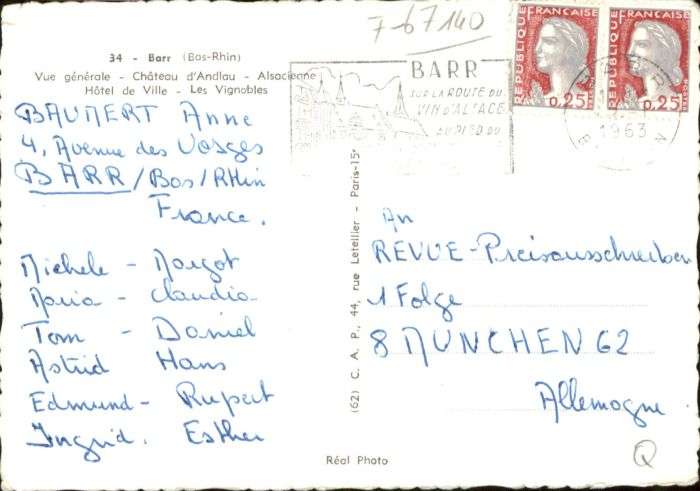 7-67140
34 - Barr (Bas-Rhin)
Vue générale - Château d'Andlau - Alsacienne
Hôtel de Ville - Les Vignobles
BAUMERT Anne
4, Avenue des Vosges
BARR/Bas/Rhin
France.
Michele - Margot
Maria - Claudia
Tom - Daniel
Astrid Hans
Edmund - Rupert
Ingrid. Esther
BARR
SUR LA ROUTE DU
VIN D'ALSACE
AU PIED DU
REPUBLIQUE FRANÇAISE
0,25
REPUBLIQUE FRANÇAISE
0,25
BARR
1963
(62) C. A. P., 44, rue Letellier - Paris-15e
An
REVUE-Preisausschreiben
1 Folge
8 MUNCHEN 62
Allemagne
Réal Photo
Q